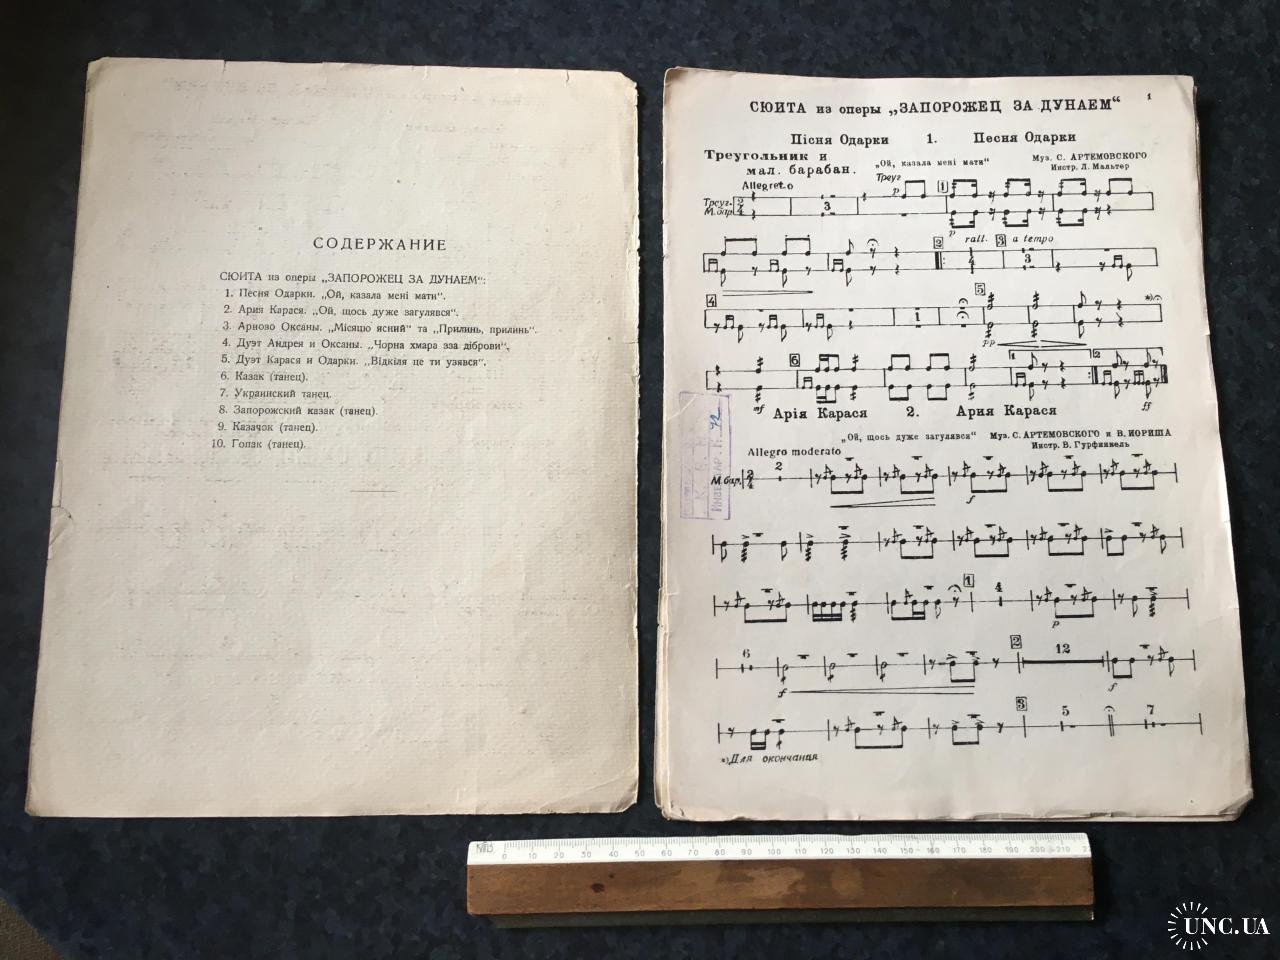 СОДЕРЖАНИЕ
СЮИТА из оперы „ЗАПОРОЖЕЦ ЗА ДУНАЕМ“:
1. Песня Одарки. „Ой, казала мені мати“.
2. Ария Карася. „Ой, щось дуже загулявся“.
3. Ариозо Оксаны. „Місяцю ясний“ та „Прилинь, прилинь“.
4. Дуэт Андрея и Оксаны. „Чорна хмара зза діброви“.
5. Дуэт Карася и Одарки. „Відкіля це ти узявся“.
6. Казак (танец).
7. Украинский танец.
8. Запорожский казак (танец).
9. Казачок (танец).
10. Гопак (танец).
1
СЮИТА из оперы „ЗАПОРОЖЕЦ ЗА ДУНАЕМ“
Пісня Одарки 1. Песня Одарки
Треугольник и
мал. барабан.
„Ой, казала мені мати“
Муз. С. АРТЕМОВСКОГО
Инстр. Л. Мальтер
Allegreto
Треуг
p
1
Треуг.
М.бар.
2
4
3
p
rall.
a tempo
2
3
4
3
4
5
1
*)
pp
6
1
2
mf
ff
Арія Карася 2. Ария Карася
„Ой, щось дуже загулявся“ Муз. С. АРТЕМОВСКОГО и В. ИОРИША
Инстр. В. Гурфинкель
Allegro moderato
М.бар.
2
4
2
f
1
4
p
6
2
12
f
f
3
5
7
*) Для окончания
0 10 20 30 40 50 60 70 80 90 100 110 120 130 140 150 160 170 180 190 200 210
UNC.UA